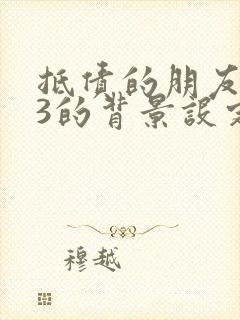 抵债的朋友
3的背景设定
穆越